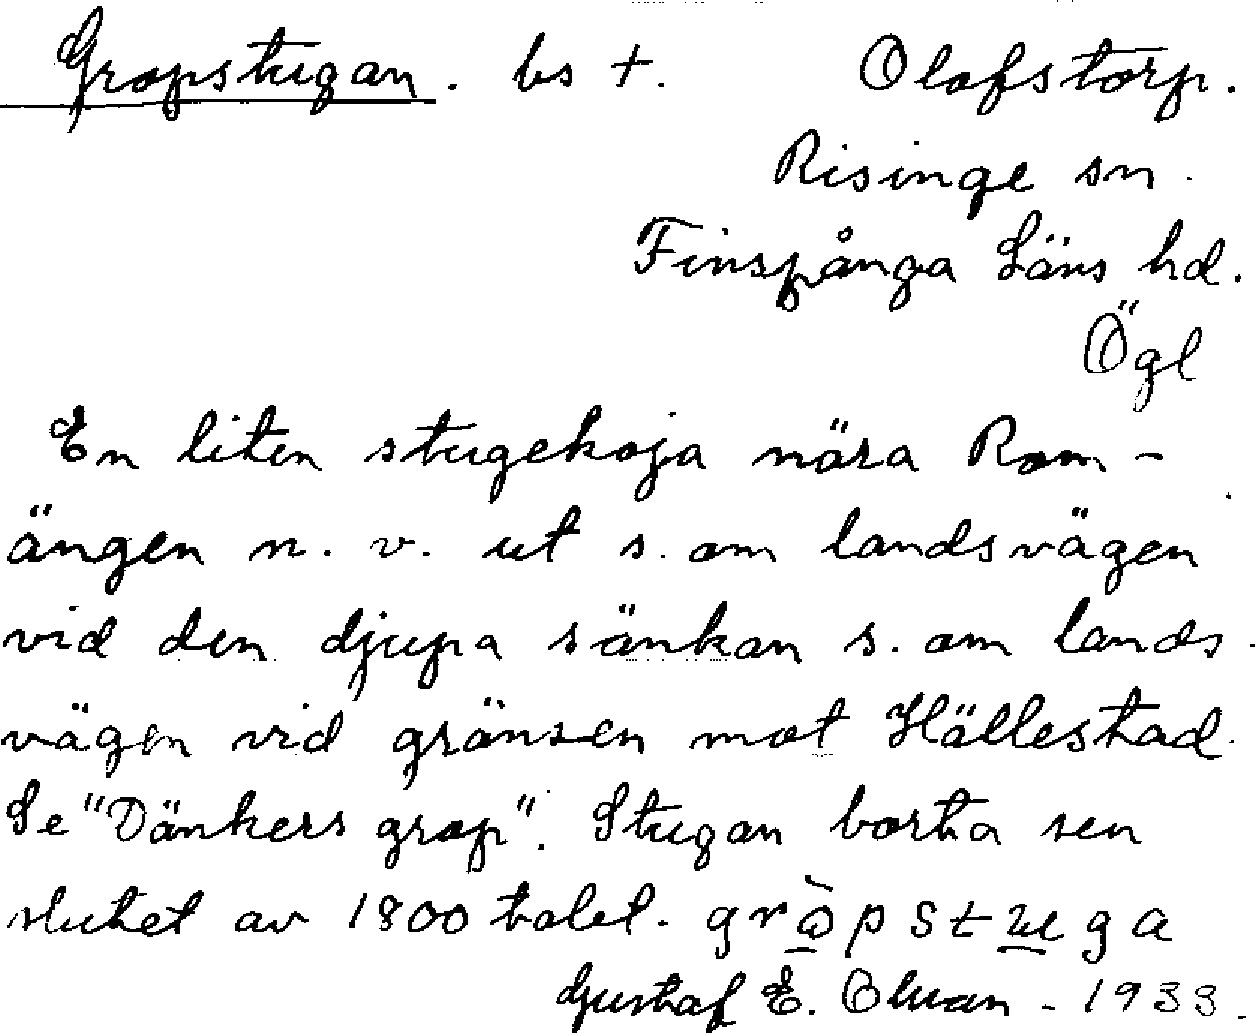 Gropstugan. bs +. Olofstorp.
Risinge sn.
Finspånga Läns hd.
Ögl
En liten stugekoja nära Rom-
ängen n. v. ut s. om landsvägen
vid den djupa sänkan s. om lands-
vägen vid gränsen mot Hällestad.
Se "Dänkers grop". Stugan borta sen
slutet av 1800 talet. gròpstuga
Gustaf E. - 1933.